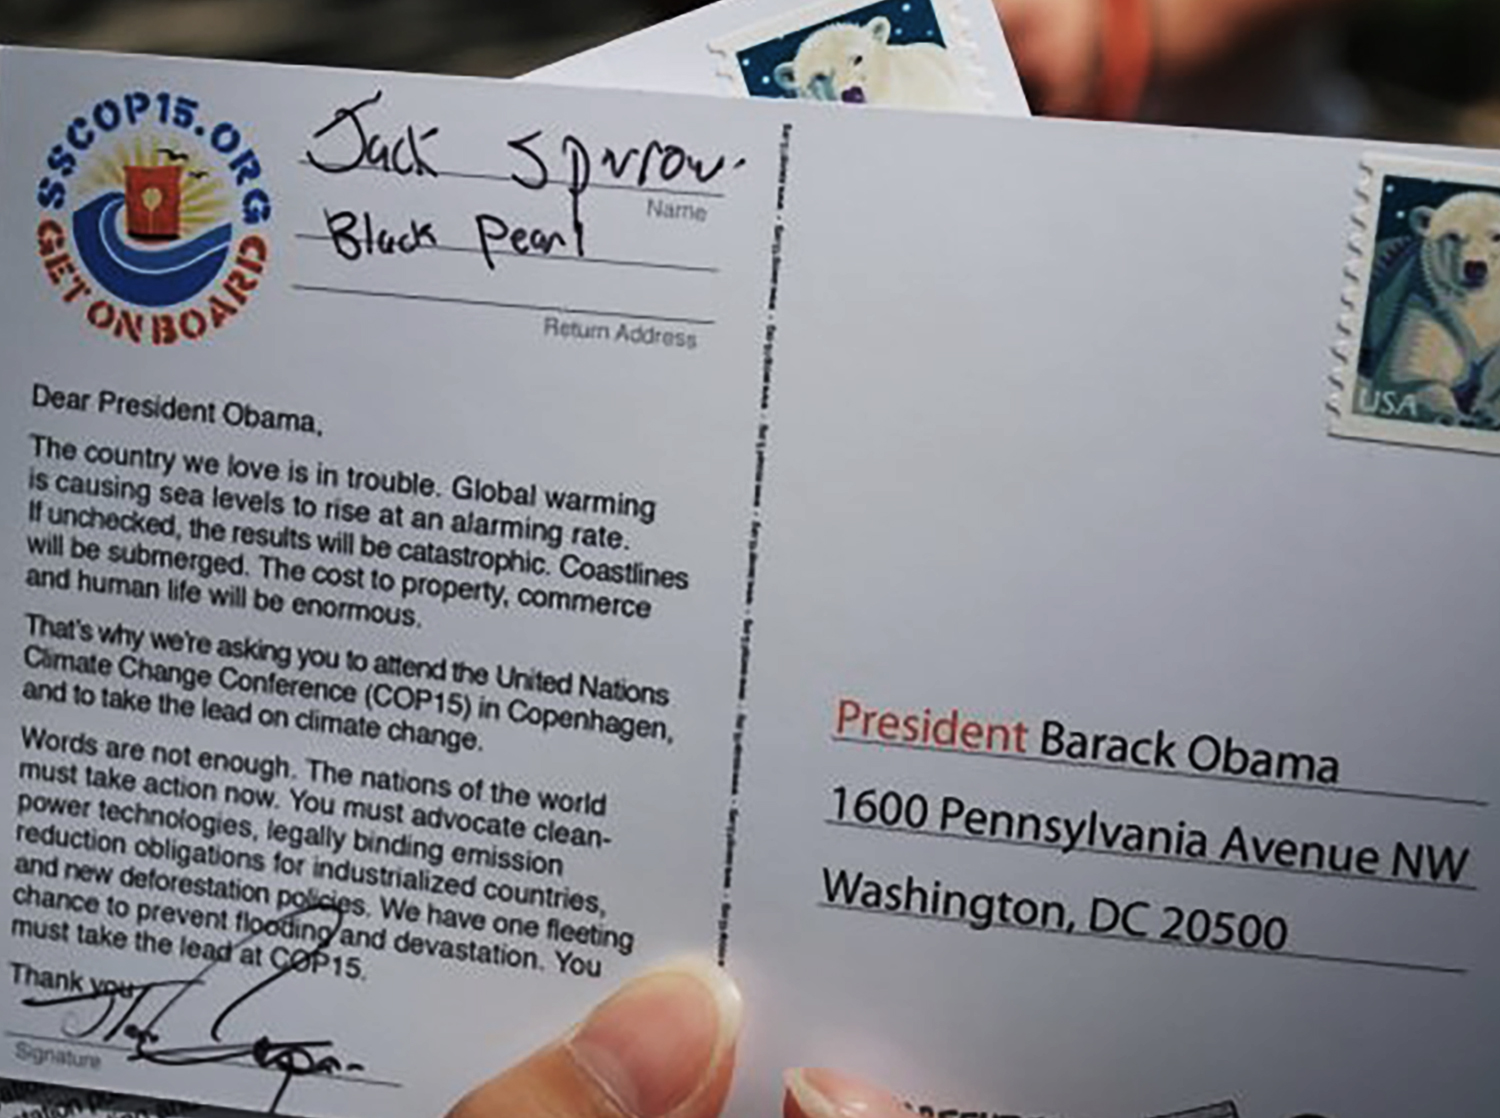 SSCOP15.ORG
GET ON BOARD
Jack Sparrow
Name
Black Pearl
Return Address
Dear President Obama,
The country we love is in trouble. Global warming
is causing sea levels to rise at an alarming rate.
If unchecked, the results will be catastrophic. Coastlines
will be submerged. The cost to property, commerce
and human life will be enormous.
That's why we're asking you to attend the United Nations
Climate Change Conference (COP15) in Copenhagen,
and to take the lead on climate change.
Words are not enough. The nations of the world
must take action now. You must advocate clean-
power technologies, legally binding emission
reduction obligations for industrialized countries,
and new deforestation policies. We have one fleeting
chance to prevent flooding and devastation. You
must take the lead at COP15.
Thank you
Signature
USA
President Barack Obama
1600 Pennsylvania Avenue NW
Washington, DC 20500